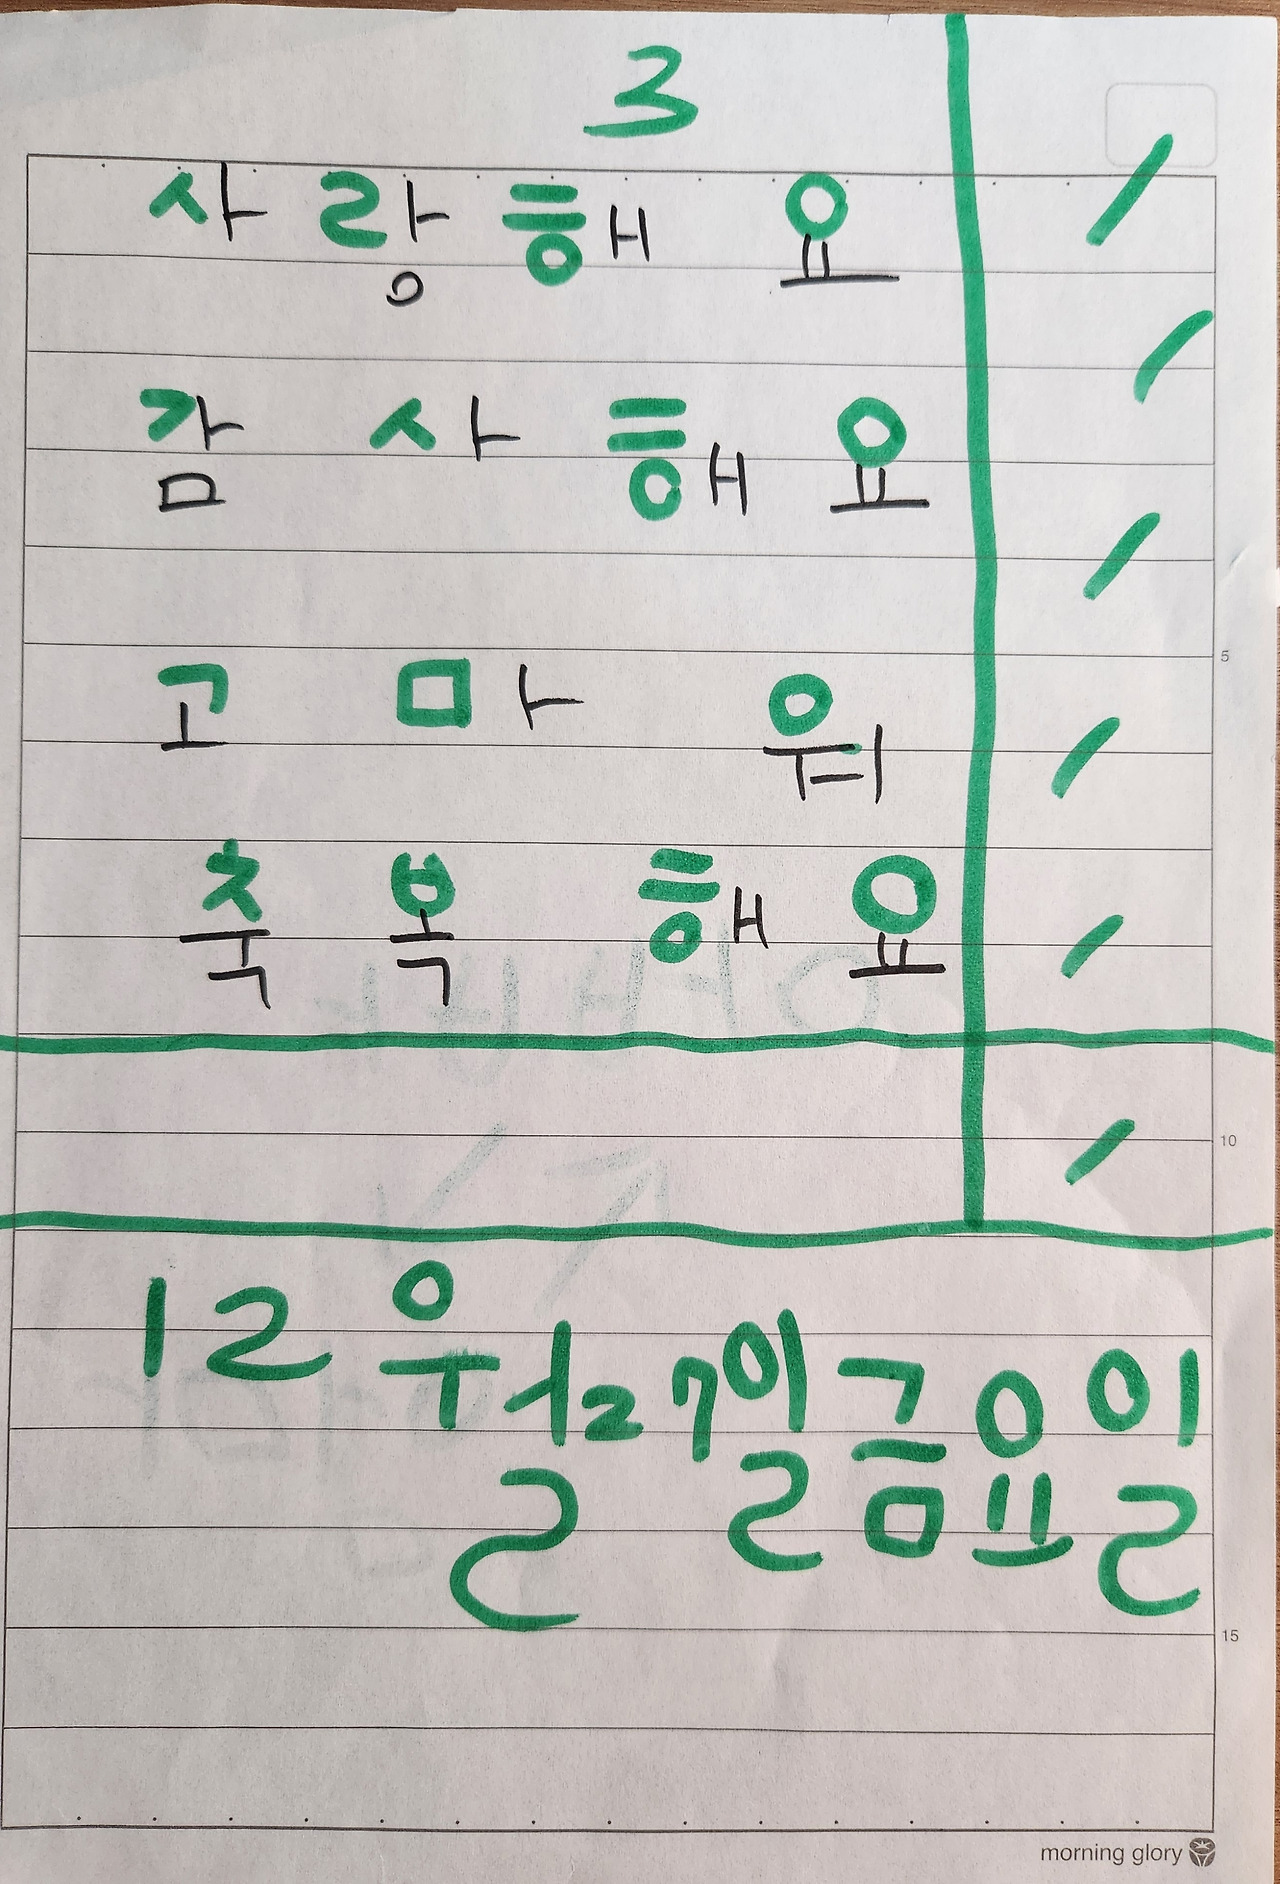 3
사랑해요
감사해요
5
고마워
축복해요
10
12월27일금요일
15
morning glory